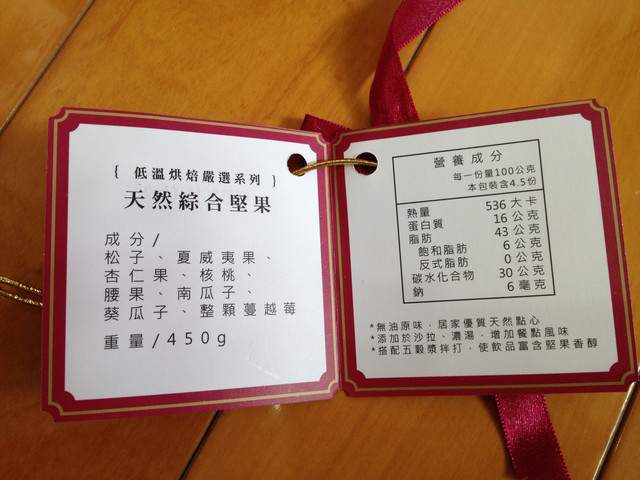 { 低溫烘焙嚴選系列 }
天然綜合堅果
成分/
松子、夏威夷果、
杏仁果、核桃、
腰果、南瓜子、
葵瓜子、整顆蔓越莓
重量/450g
營養成分
每一份量100公克
本包裝含4.5份
熱量 536 大卡
蛋白質 16 公克
脂肪 43 公克
飽和脂肪 6 公克
反式脂肪 0 公克
碳水化合物 30 公克
鈉 6 毫克
*無油原味，居家優質天然點心
*添加於沙拉、濃湯，增加餐點風味
*搭配五穀漿拌打，使飲品富含堅果香醇